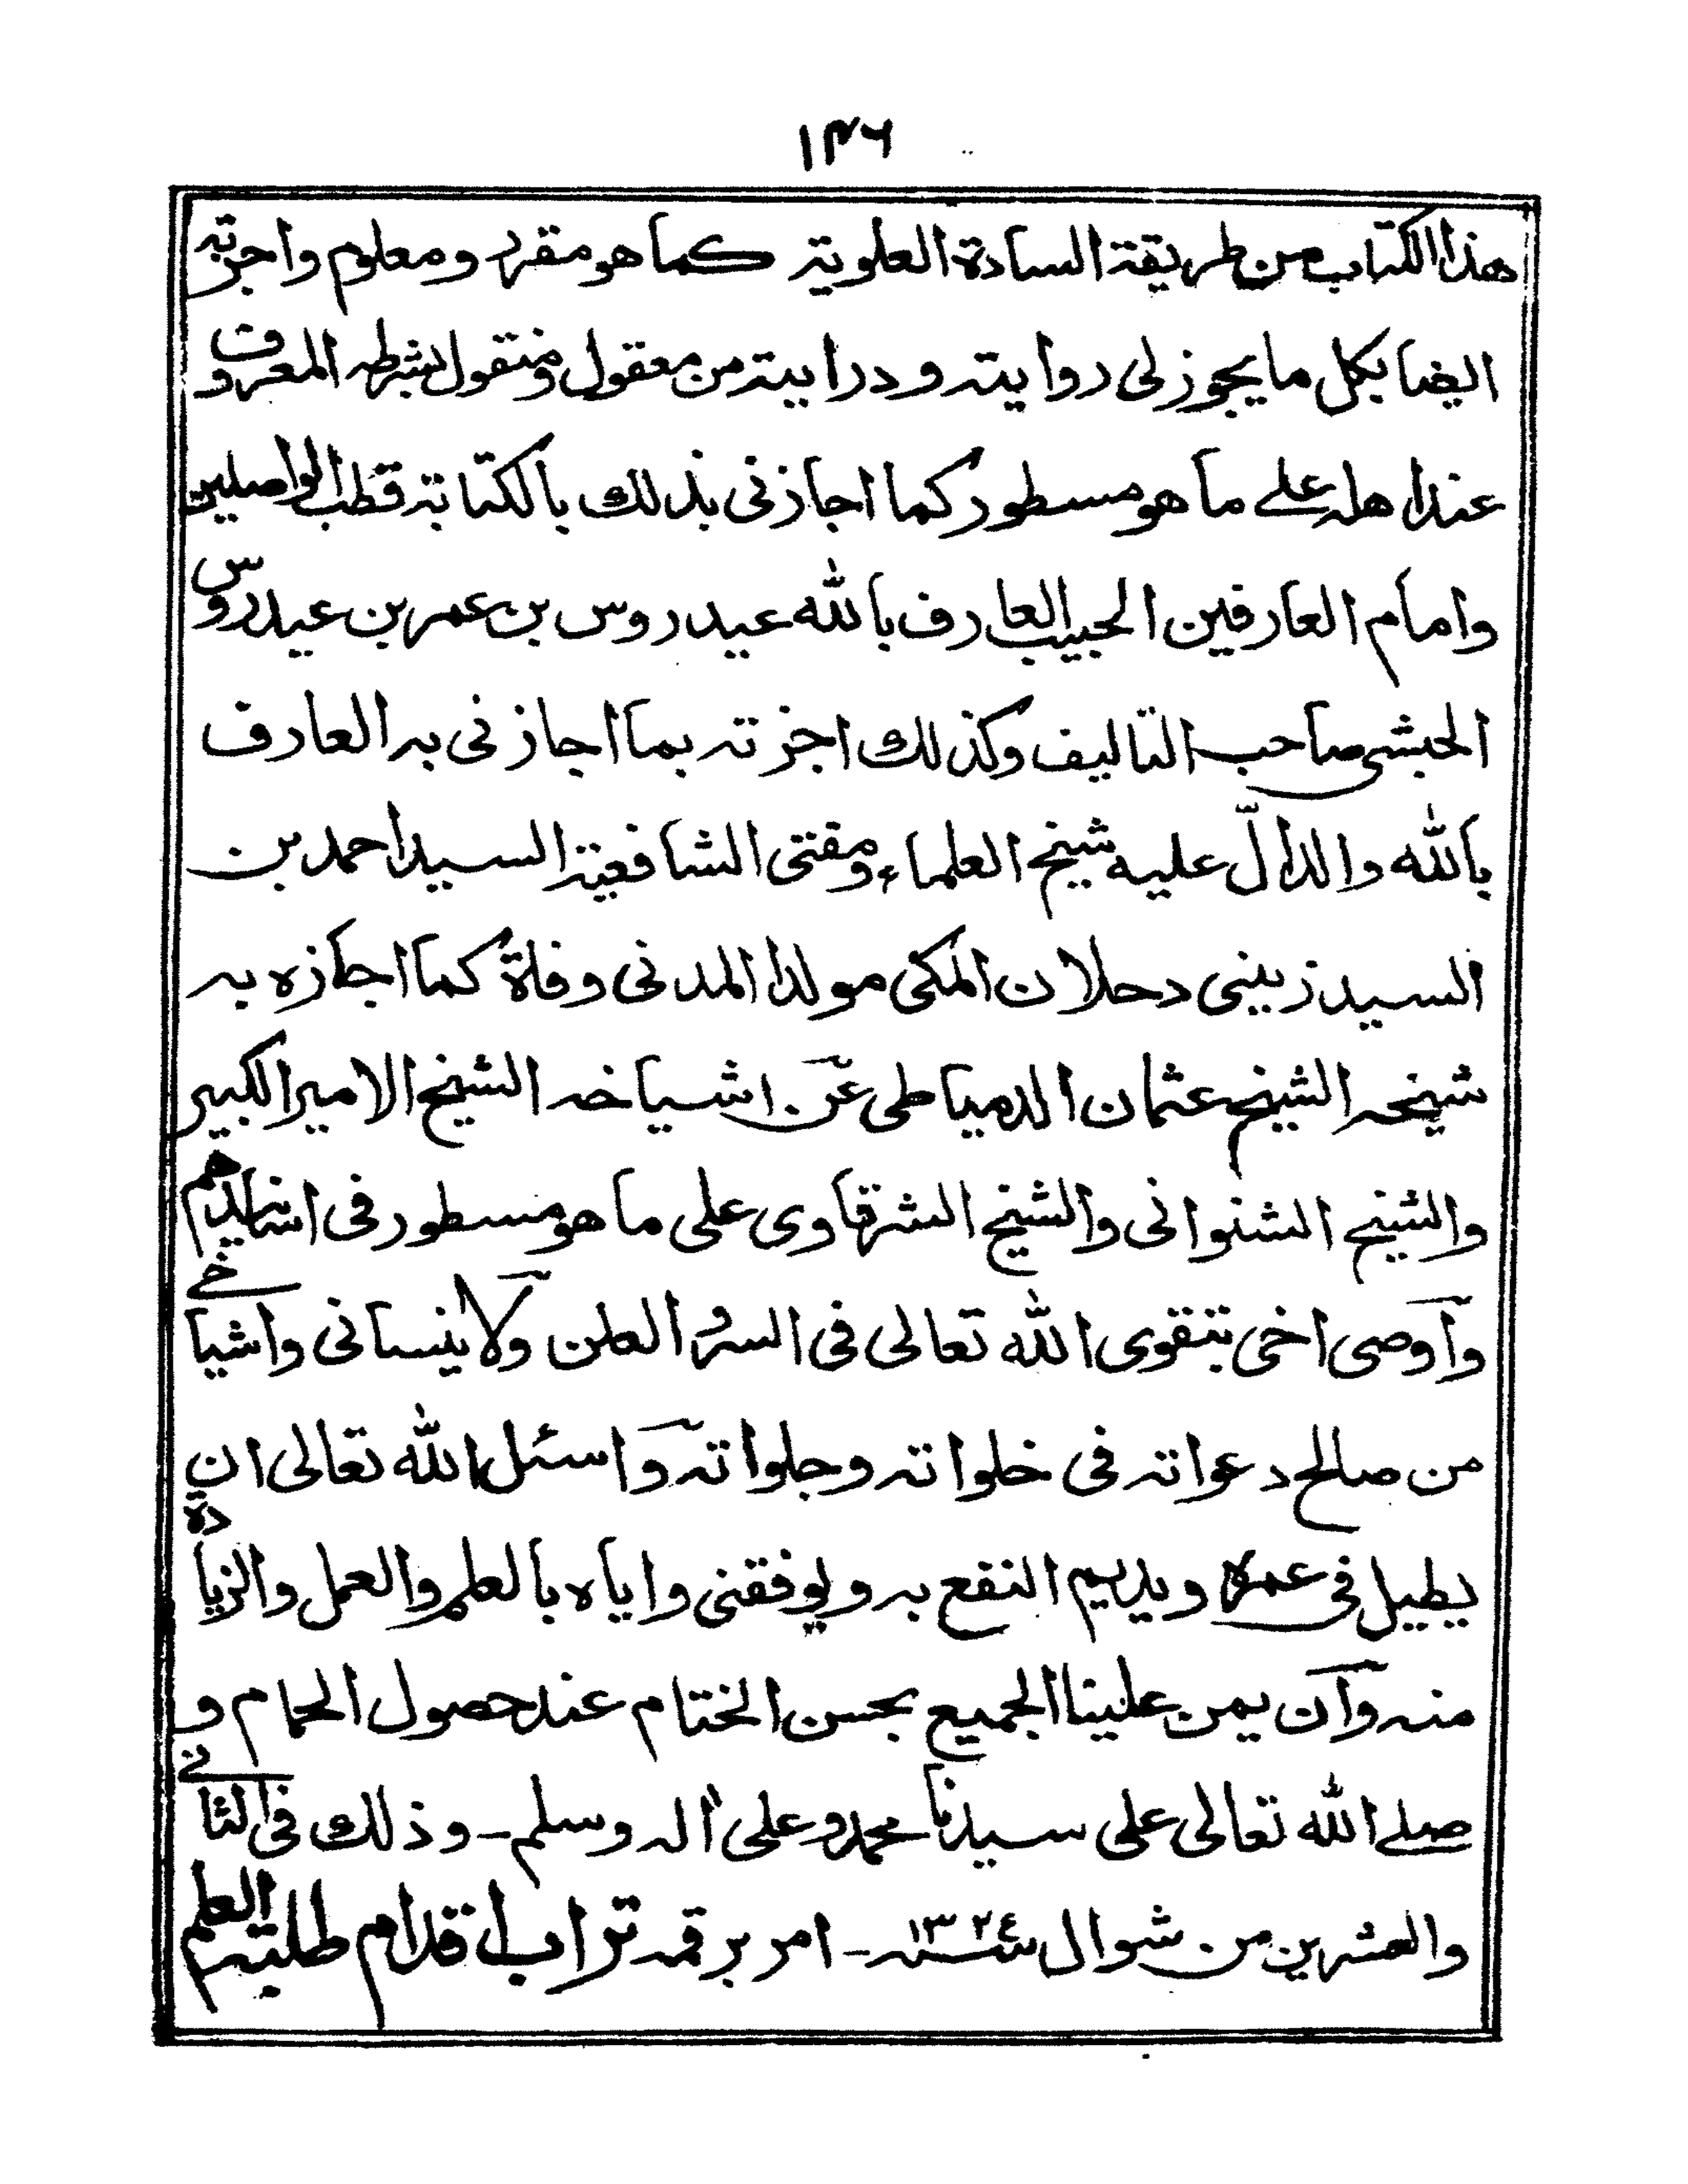 ١٣٦
هذا الكتاب من طريقة السادة العلوية كما هو مقرر ومعلوم واجزته
ايضا بكل ما يجوز لى روايته ودرايته من معقول ومنقول بشرطه المعروف
عند اهله على ما هو مسطور كما اجازنى بذلك بالكتابة قطب الواصلين
وامام العارفين الحبيب العارف بالله عيدروس بن عمر بن عيدروس
الحبشى صاحب التاليف وكذلك اجزته بما اجازنى به العارف
بالله والدالّ عليه شيخ العلماء ومفتى الشافعية السيد احمد بن
السيد زينى دحلان المكى مولدا المدنى وفاة كما اجازه به
شيخه الشيخ عثمان الدمياطى عن اشياخه الشيخ الامير الكبير
والشيخ الشنوانى والشيخ الشرقاوى على ما هو مسطور فى اسانيدهم
واوصى اخى بتقوى الله تعالى فى السر والعلن ولا ينسانى واشياخى
من صالح دعواته فى خلواته وجلواته واسئل الله تعالى ان
يطيل فى عمره ويديم النفع به ويوفقنى واياه بالعلم والعمل والزيادة
منه وان يمن علينا الجميع بحسن الختام عند حصول الحمام و
صلى الله تعالى على سيدنا محمد وعلى اله وسلم - وذلك فى الثانى
والعشرين من شوال سنة ١٣٢٤ - امر برقمه تراب اقدام طلبة العلم